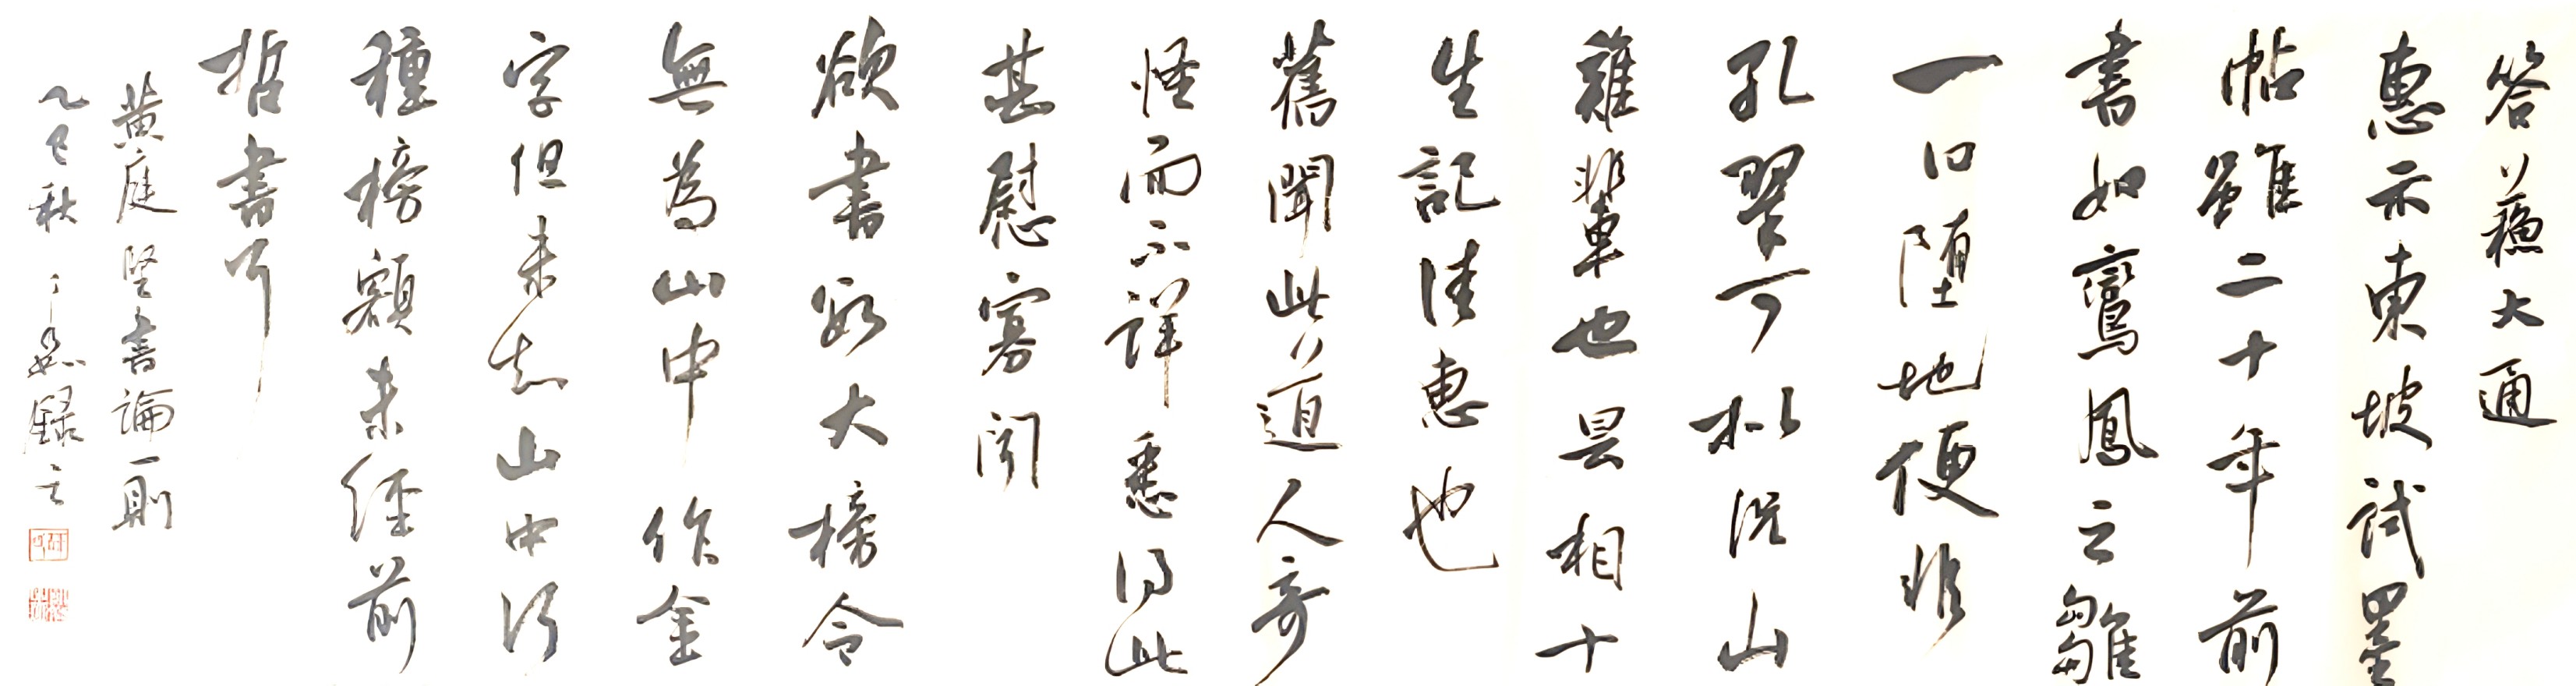 答蘇大通
惠示東坡試墨
帖雖二十年前
書如鸞鳳之雛
一口堕地便非
孔翠可拟况山
雞輩也昙相十
生記佳惠也
舊聞此道人奇
怪而不詳悉得此
甚慰寡聞
欲書大榜令
無為山中作金
字但未知山中何
種榜額未經前
哲書耳
黄庭堅書論一則
乙巳秋 錄之